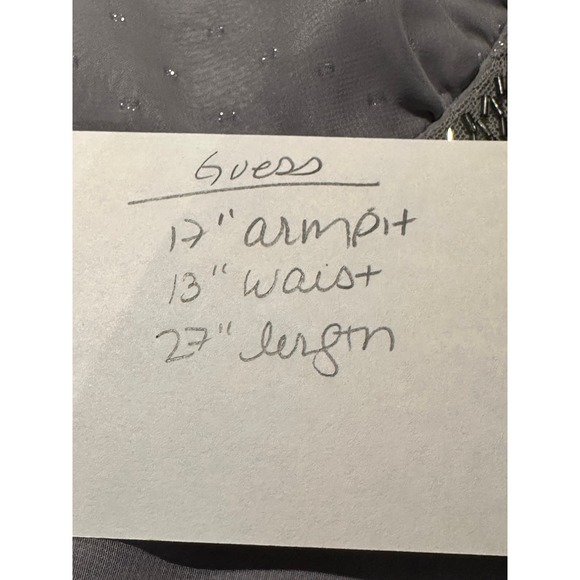 Guess
17" armpit
13" waist
27" length